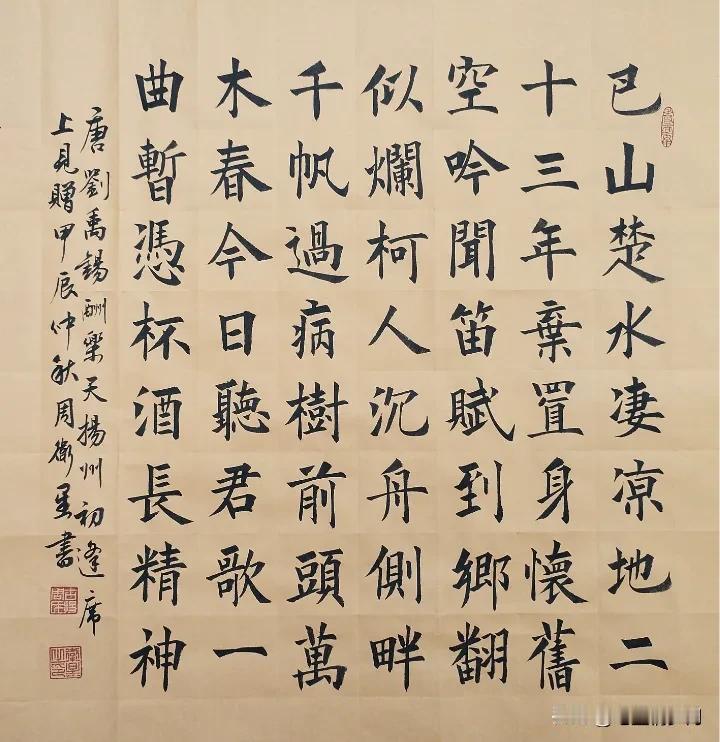 巴山楚水凄凉地二
十三年棄置身懷舊
空吟聞笛賦到鄉翻
似爛柯人沉舟側畔
千帆過病樹前頭萬
木春今日聽君歌一
曲暫憑杯酒長精神
唐劉禹錫酬樂天揚州初逢席
上見贈甲辰仲秋周衛星書